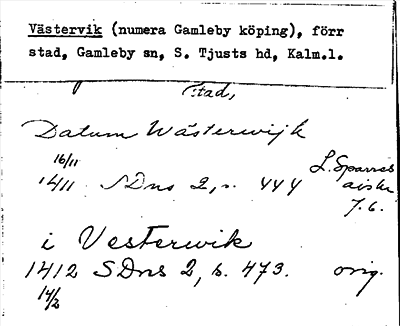 Västervik (numera Gamleby köping), förr
stad, Gamleby sn, S. Tjusts hd, Kalm.l.
stad,
Datum Wästerwijk
16/11
1411 SDns 2, s. 444 L. Sparres
avskr
7.6.
i Vesterwik
1412 SDns 2, s. 473. orig.
14/2